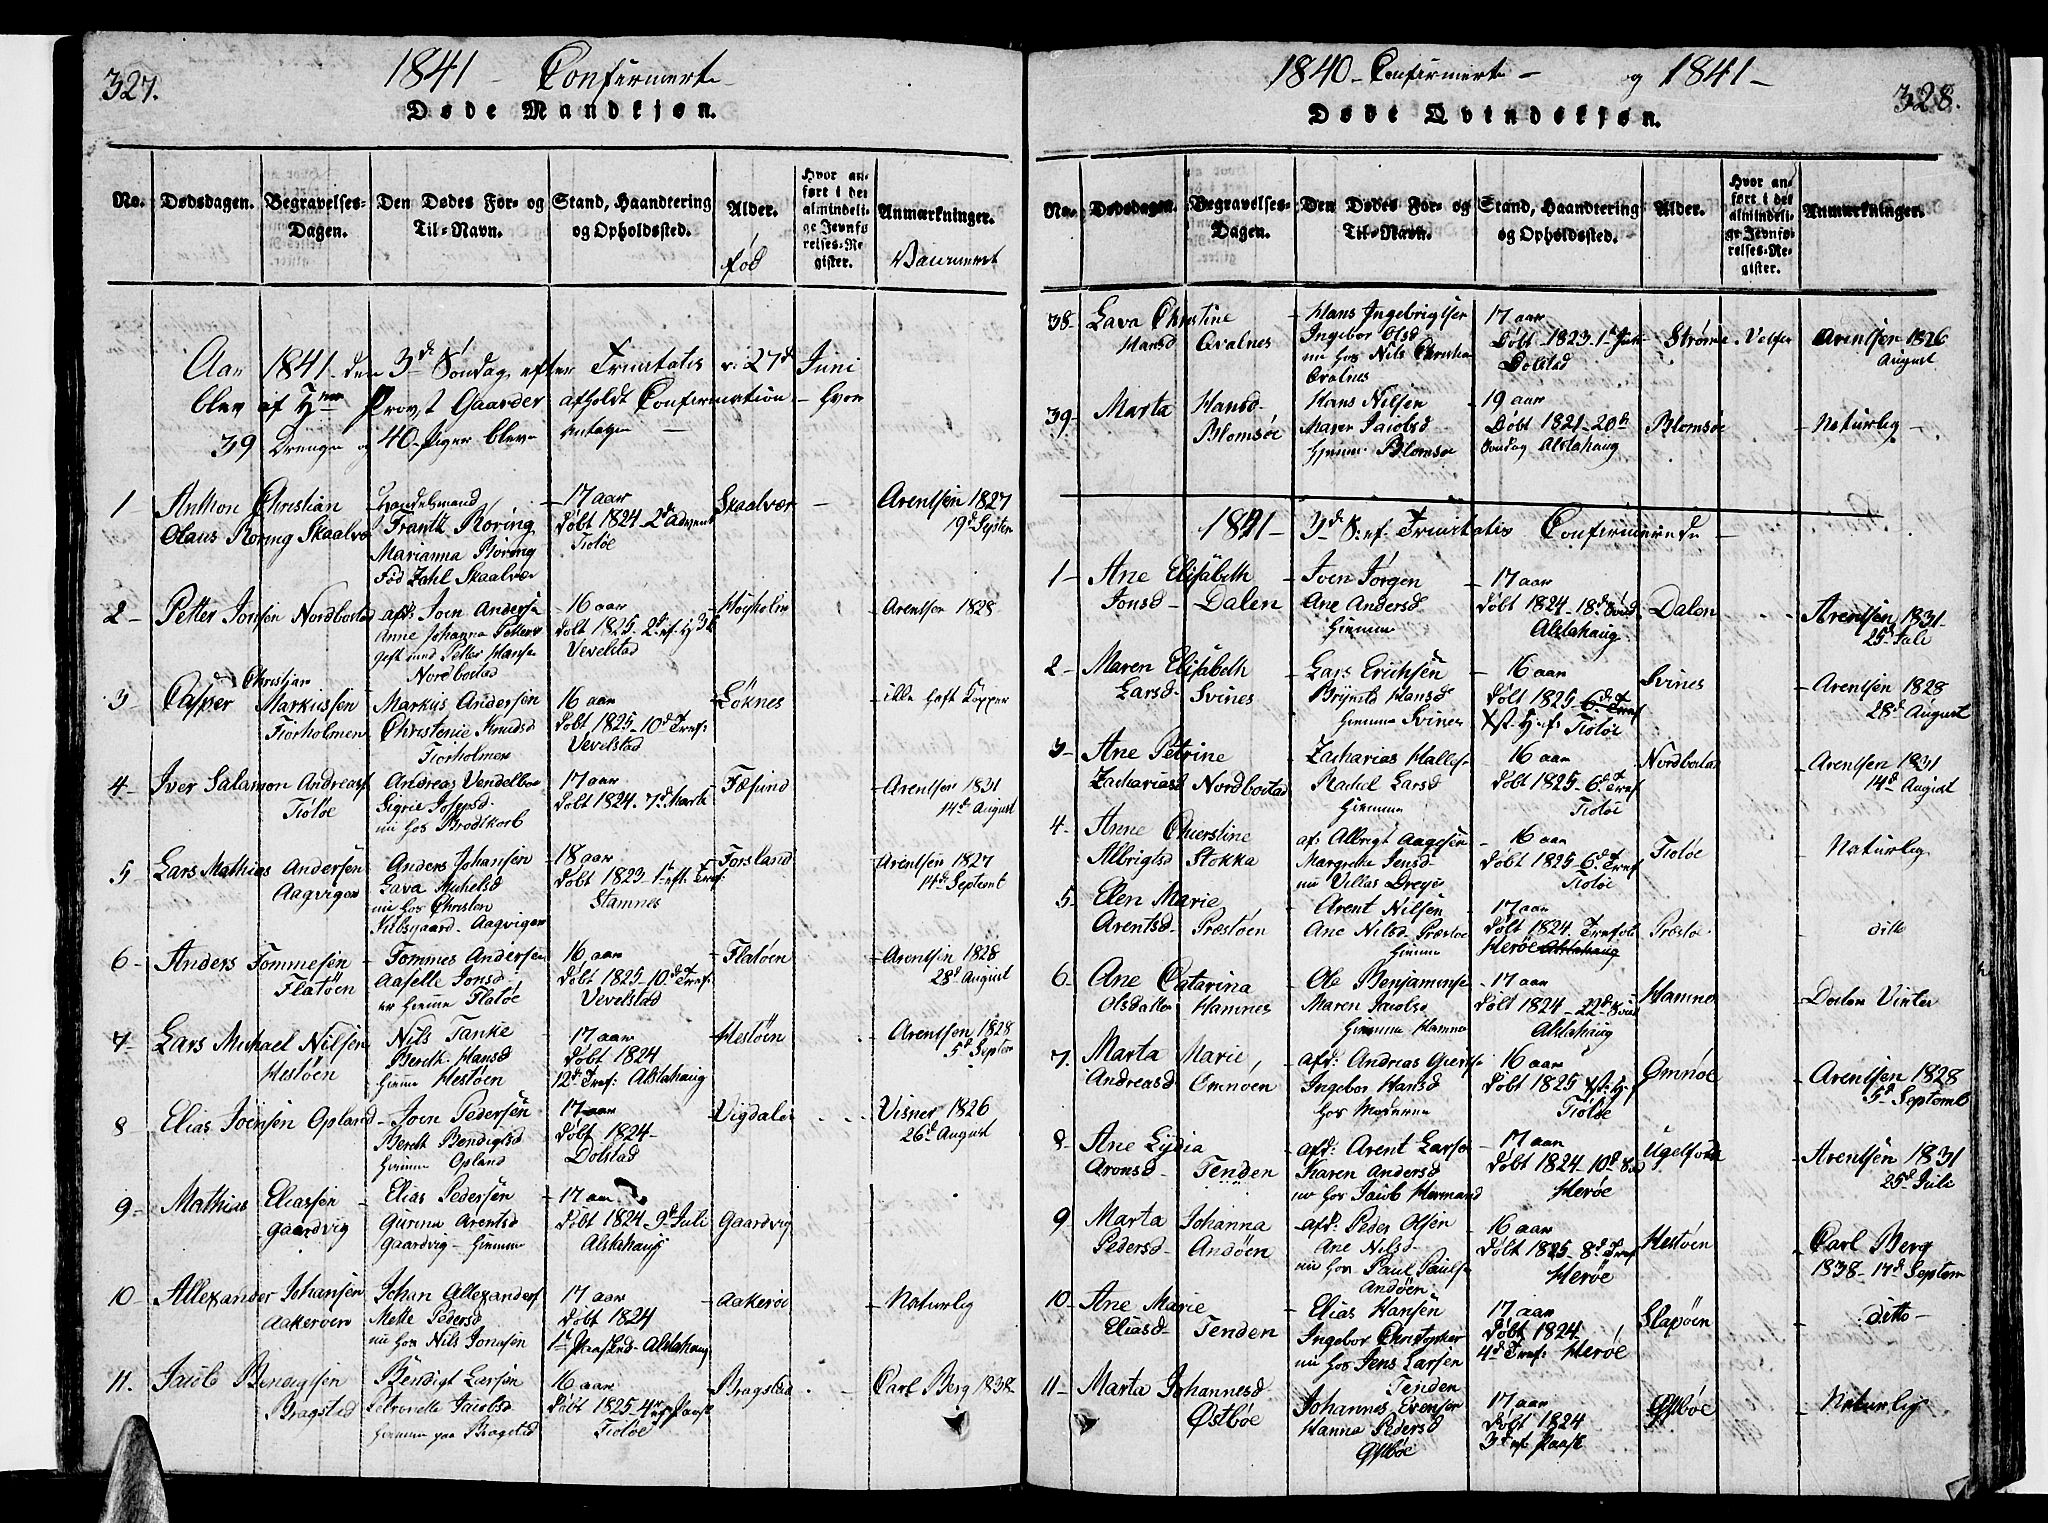 327.
1841 – Confirmerte
Døde Mandkjøn.
No. Dødsdagen. Begravelses-Dagen. Den Dødes For- og Til-Navn. Stand, Haandtering og Opholdssted. Alder. Hvor anført i det almindelige Jevnførelses-Register. Anmærkninger.
fød
Vacineret
Aar 1841 den 3d Søndag efter Trinitatis v: 27d Juni
blev af Hrr Provst Gaarder afholdt Confirmation – hvor
39 Drenge og 40 Piger bleve antagne –
1 Anthon Christian
Olaus Røring Skaalvær
Handelsmand
Frantz Røring
Marianna Røring
Fød Zahl Skaalvær
17 aar
Døbt 1824 2d Advent
Tiøtøe
Skaalvær
Arentsen 1827
19d Septem
2 Petter Joensen Nordbostad
afd: Joen Anderse
Anne Johanna Petters
gift med Petter Hanse
Nordbostad
16 aar
Døbt 1825 2d ef. H 3 K
Vevelstad
Høyholm
Arentsen 1828
3 Casper Christian Markussen
Tiorholmen
Markus Andersen
Christenie Knudsd
Tiorholmen
16 aar
Døbt 1825 10d Tref:
Vevelstad
Løknes
ille haft Kopper
4 Iver Salamon Andreass
Tiøtøe
Andreas Vendelboe
Sigrie Josepsd.
nu hos Brodtkorb
17 aar
Døbt 1824. 7d Marti
Fæsund
Arentsen 1831
14d August
5 Lars Mathias Andersen
Aagvigen
Anders Johansen
Lava Michelsd
nu hos Christen
Kilsgaard. Aagvigen
18 aar
Døbt 1823 1t eft. Tref.
Stamnes
Forsland
Arentsen 1827
14d Septemt
6 Anders Tommesen
Flatøen
Tommes Andersen
Aaselle Jonsd
er hiemme Flatøe
16 aar
Døbt 1825 10d Tref:
Vevelstad
Flatøen
Arentsen 1828
28d August
7 Lars Michael Nilsen
Hestøen
Nils Tanke
Berdt Hansd
hiemme Hestøen
17 aar
Døbt 1824
12d Tref: Alstahaug
Hestøen
Arentsen 1828
5d Septem
8 Elias Joensen Opland
Joen Pedersen
Berdt Bendigtsd
hiemme Opland
17 aar
Døbt 1824
Dolstad
Vigdalen
Visner 1826
26d August
9 Mathias Eliassen
Gaardvig
Elias Pedersen
Gurina Arentsd
Gaardvig – hiemme
17 aar
Døbt 1824 9d Juli
Alstahaug
Gaardvig
10 Allexander Johansen
Aakervien
Johan Allexanders
Mette Pedersd
nu hos Nils Jonasen
17 aar
Døbt 1824
1t Paaskd. Alstahaug
Aakerøe
Naturlig
11. Jacob Bendigtsen
Bragstad
Bendigt Larsen
Petronelle Jacobsd
hiemme paa Bragstad
16 aar
Døbt 1825 4d ef Paask
Tiøtøe
Bragstad
Carl Berg 1838
328.
1840 – Confirmerte – og 1841 –
Døde Qvindekjøn.
No. Dødsdagen. Begravelses-Dagen. Den Dødes For- og Til-Navn. Stand, Haandtering og Opholdssted. Alder. Hvor anført i det almindelige Jevnførelses-Register. Anmærkninger.
38 Lava Christine
Hansd Qvalnes
Hans Ingebrigtsen
Ingebor Olsd
nu hos Nils Christian
Qvalnes
17 aar
Døbt 1823. 1t Juli
Dolstad
Strøm
Arentsen 1826
August
39 Marta Hansd
Blomsøe
Hans Nilsen
Maren Jacobsd
hiemme Blomsøe
19 aar
Døbt 1821 20d
Søndag Alstahaug
Blomsøe
Naturlig
1841 – 3d S: ef. Trinitatis Confirmerede –
1 Ane Elisabeth
Jonsd Dalen
Joen Jörgen
Ane Andersd
hiemme
17 aar
Døbt 1824 18d Sønd
Alstahaug
Dalen
Arentsen 1831
25d Juli
2 Maren Elisabeth
Larsd Svines
Lars Erichsen
Brynild Hansd
hiemme Svines
16 aar
Døbt 1825 6d Tref
Xst. H. ef: Tiøtøe
Svines
Arentsen 1828
28d August
3 Ane Petrine
Zachariasd Nordbostad
Zacharias Hallesen
Rachel Larsd
hiemme
16 aar
Døbt 1825 6d Tref
Tiøtøe
Nordbostad
Arentsen 1831
14d August
4 Anne Chierstine
Albrigtsd Stokka
af: Albrigt Aagesen
Margrette Jensd
nu Villas Dreyø
16 aar
Døbt 1825 6d Tref
Tiøtøe
Tiøtøe
Naturlig
5 Elen Marie
Arentsd Præstøen
Arent Nilsen
Ane Nilsd Præstøe
hiemme
17 aar
Døbt 1824. Trefol
Herøe Alstahaug
Præstøe
ditto
6 Ane Catarina
Olsdatter Hamnes
Ole Benjaminsen
Maren Jacobsd
hiemme Hamnes
17 aar
Døbt 1824 22d Sønd
Alstahaug
Hamnes
Docter Vinter
7. Marta Marie
Andreasd Ømnøen
afd: Andreas Giertsen
Ingebor Hansd
hos Moderen
16 aar
Døbt 1825 Xst: H:
Tiøtøe
Ømnøe
Arentsen 1828
5d Septemb
8 Ane Lydia
Aronsd Tenden
afd: Arent Larsen
Karen Andersd
nu hos Jacob Hermand
17 aar
Døbt 1824 10d Sønd
Herøe
Ugelfora
Arentsen 1831
25d Juli
9 Marta Johanna
Pedersd Andøen
afd: Peder Olsen
Ane Nilsd
nu hos Paul Paulsen
Andøen
16 aar
Døbt 1825 8d Tref
Herøe
Hestøen
Carl Berg
1838 17d Septem
10 Ane Marie
Eliasd Tenden
Elias Hansen
Ingebor Christopher
nu hos Jens Larsen
Tenden
17 aar
Døbt 1824
4d Tref: Herøe
Slapøen
ditto
11 Marta Johannesd
Østbøe
Johannes Evensen
Hanna Pedersd
Østbøe
17 aar
Døbt 1824
3d ef Paask
Østbøe
Naturlig